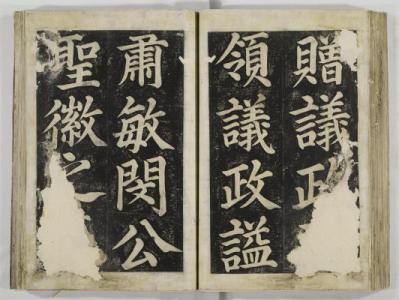 贈議政
領議政謚
肅敏閔公
聖徽之